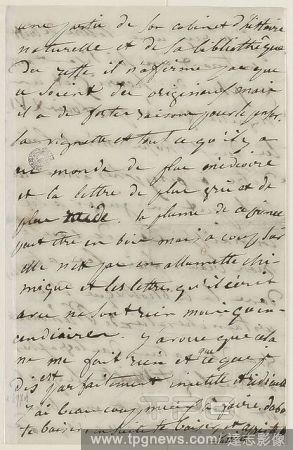 une partie de son cabinet d'histoire
naturelle et de sa bibliothèque
du reste il n'affirme pas que
ce soient des originaux mais
il a de fortes raisons pour le
la vignette et tout ce qu'il y a
au monde de plus médiocre
et la lettre de plus et de
plus raide. la plume de ce prince
peut être en bien mais à coup sûr
elle n'est pas en allumette chi
mique et les lettres qu'il écrit
avec ne sont rien moins qu'in
cendiaires. j'avoue que cela
ne me fait rien et que ce que je
dis est parfaitement inutile et
j'ai beaucoup mieux à faire,
te baiser ensuite te baiser et après
www.tpgnews.com 達志影像